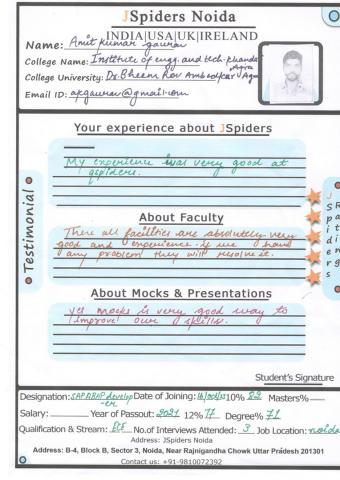 JSpiders Noida
INDIA|USA|UK|IRELAND
Name: Amit kumar gaurav
College Name: Institute of engg. and tech. khandari
Agra
College University: Dr. Bheem Rov Ambedkar Agra
Email ID: apgaurav@gmail.com
Your experience about JSpiders
My experience was very good at
qspiders.
About Faculty
There all facilties are absolutely very
good and experience. if we have
any problem they will resolve it.
About Mocks & Presentations
yes mocks is very good way to
improve our skills.
Testimonial
JSpiders
Rating
Student's Signature
Designation: SAP ABAP develop-er Date of Joining: 10% 82 Masters%
Salary: Year of Passout: 2021 12% 77 Degree% 71
Qualification & Stream: ECE No.of Interviews Attended: 3 Job Location: noida
Address: JSpiders Noida
Address: B-4, Block B, Sector 3, Noida, Near Rajnigandha Chowk Uttar Pradesh 201301
Contact us: +91-9810072392